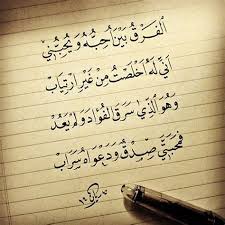 الفَرْقُ بَيْنَ أُحِبُّهُ وَيُحِبُّنِي
أَنِّي لَهُ أَخْلَصْتُ مِنْ غَيْرِ ارْتِيَابِ
وَهُوَ الَّذِي سَرَقَ الفُؤَادَ وَلَمْ يَعُدْ
فَمَحَبَّتِي صِدْقٌ وَدَعْوَاهُ سَرَابْ